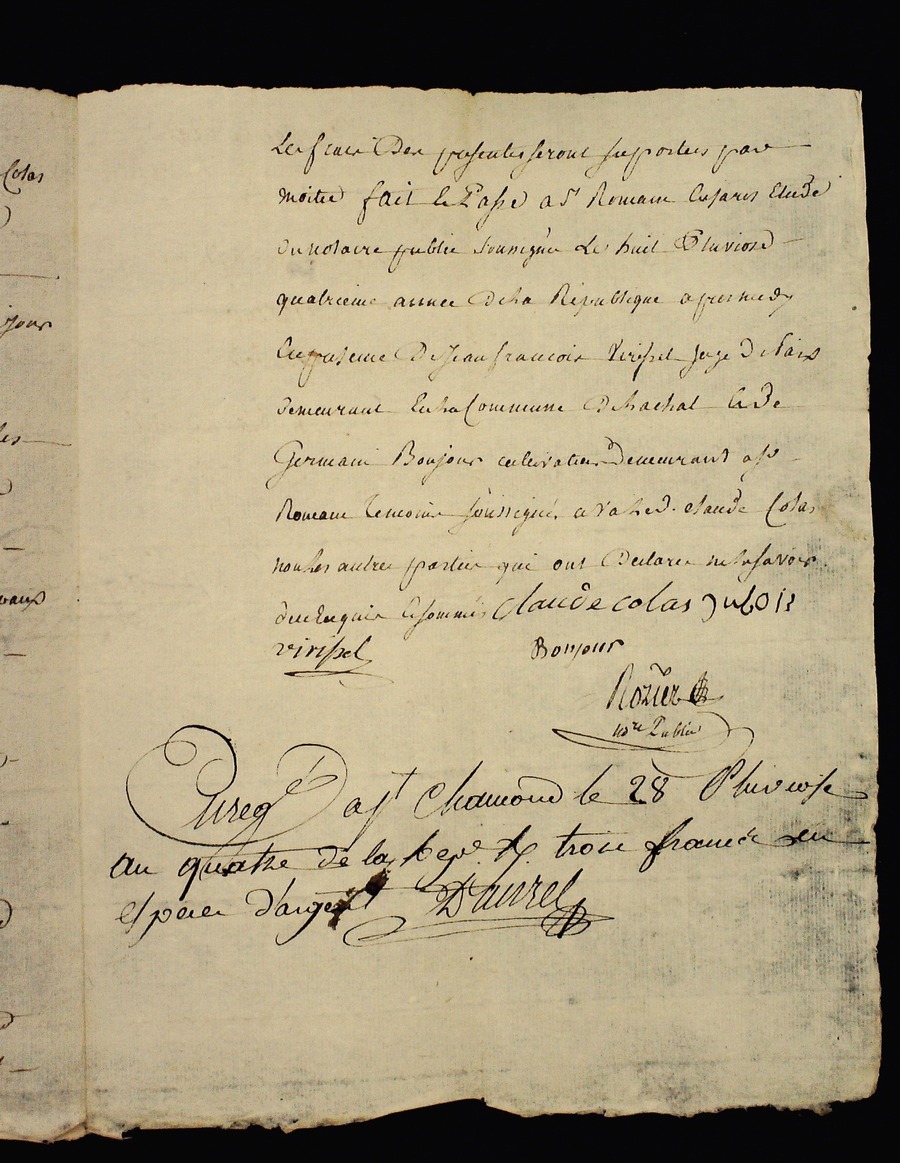 Colas
jour
les
vaux
Les frais Des presentes seront suportés par
moitié fait et Passé a St Romain Etude
du notaire public soussigné Le huit Pluviose
quatrieme année De la République apres midy
En presence De Jean francois Viripel juge De Paix
demeurant En la Commune De et de
Germain Bonjour cultivateur demeurant a st
Romain temoins soussignés avec led. claude Colas
non les autres parties qui ont Declaré ne le savoir
de ce Enquis et sommés claude colas
viripel Bonjour
Rozier
nore Public
Enregé a st chamond le 28 Pluviose
an quatre de la rep. R. trois francs en
especes d'argent Daurel